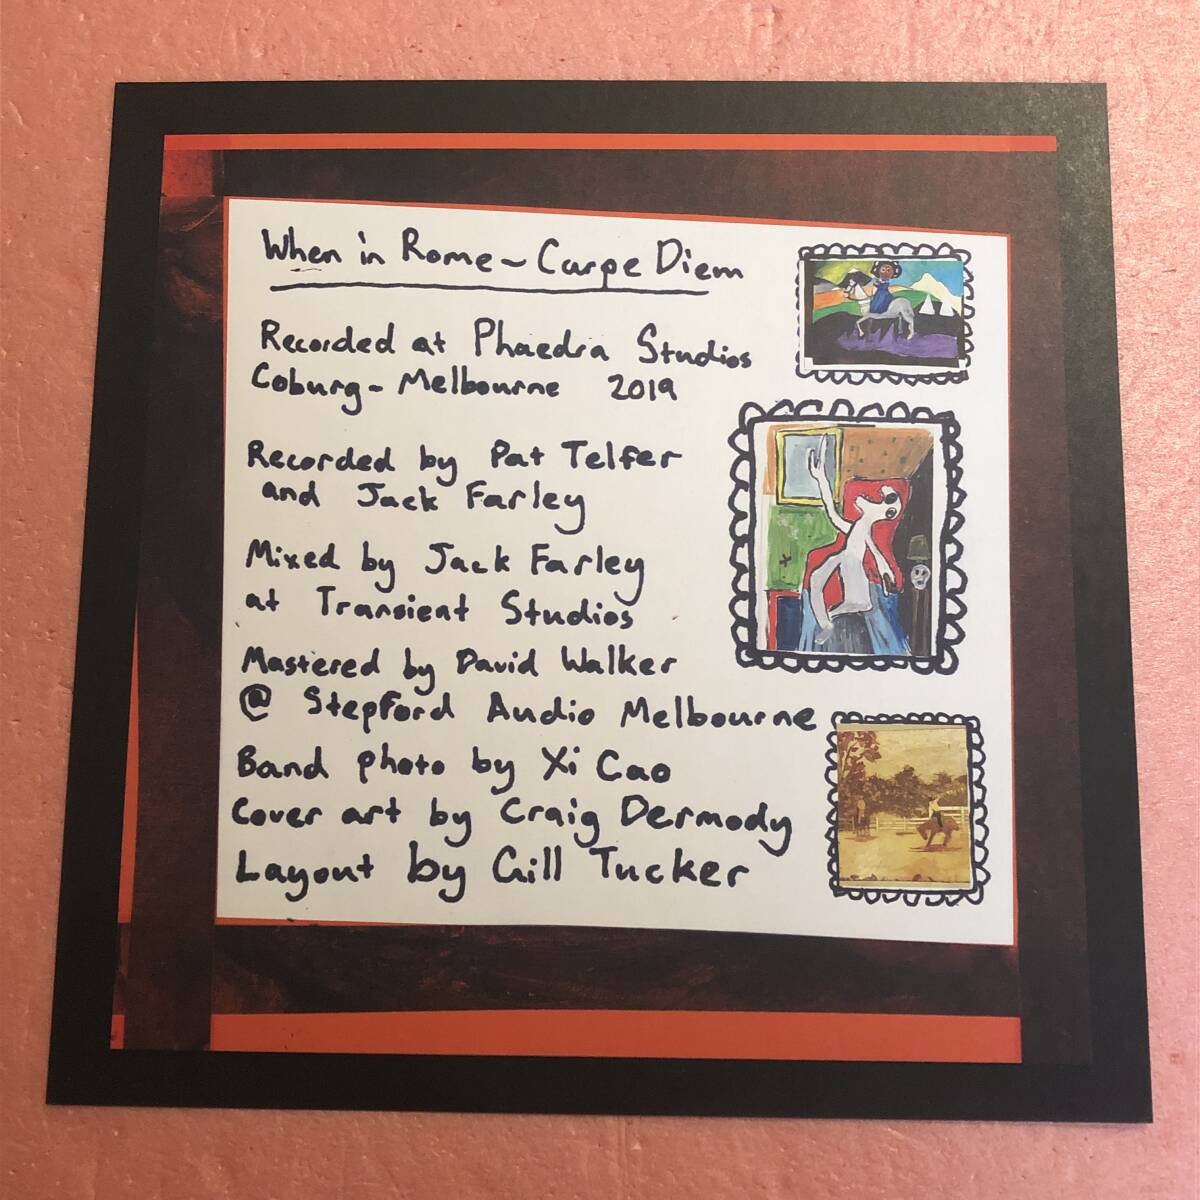 When in Rome ~ Carpe Diem
Recorded at Phaedra Studios
Coburg - Melbourne 2019
Recorded by Pat Telfer
and Jack Farley
Mixed by Jack Farley
at Transient Studios
Mastered by David Walker
@ Stepford Audio Melbourne
Band photo by Xi Cao
Cover art by Craig Dermody
Layout by Gill Tucker